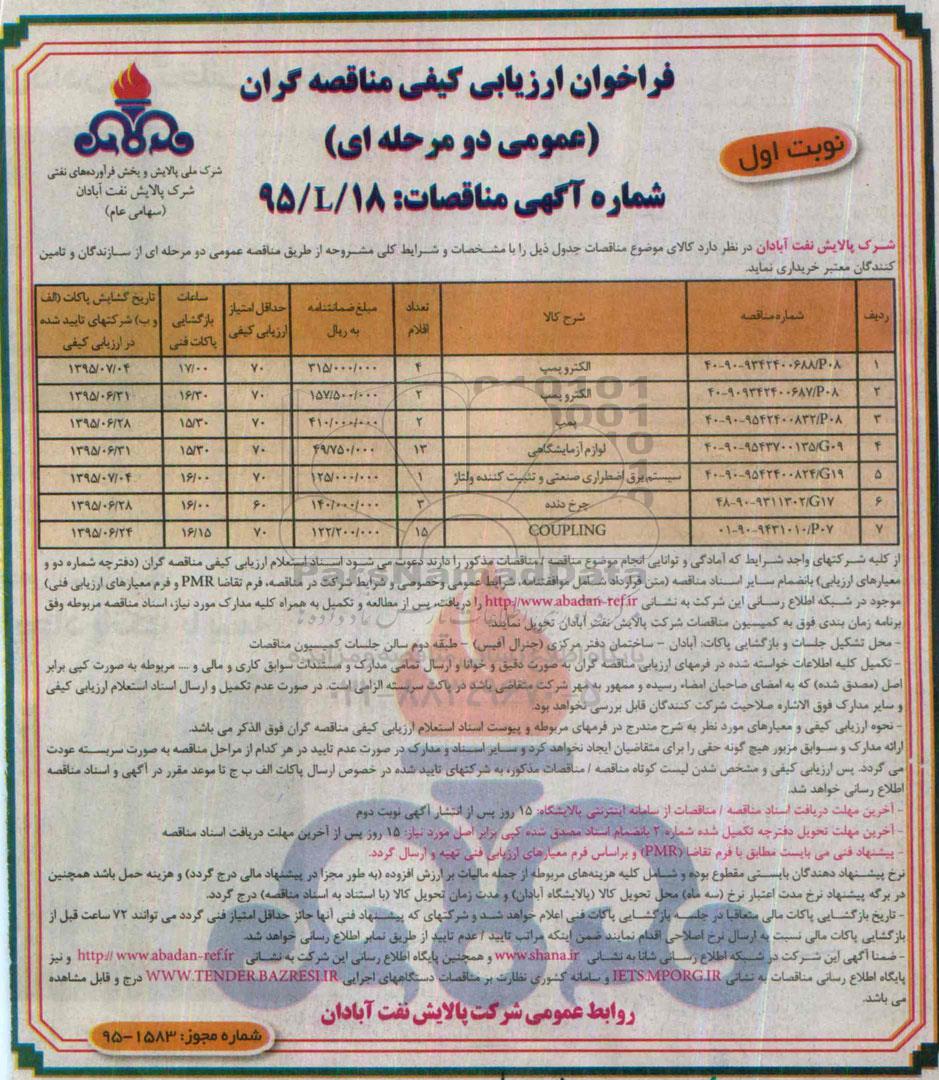 فراخوان ارزیابی کیفی مناقصه گران
(عمومی دو مرحله ای)
شماره آگهی مناقصات: ۹۵/L/۱۸
نوبت اول
شرکت ملی پالایش و پخش فرآورده‌های نفتی
شرکت پالایش نفت آبادان
(سهامی عام)
شرکت پالایش نفت آبادان در نظر دارد کالای موضوع مناقصات جدول ذیل را با مشخصات و شرایط کلی مشروحه از طریق مناقصه عمومی دو مرحله ای از سازندگان و تامین
کنندگان معتبر خریداری نماید.
ردیف شماره مناقصه شرح کالا تعداد اقلام مبلغ ضمانتنامه به ریال حداقل امتیاز ارزیابی کیفی ساعات بازگشایی پاکات فنی تاریخ گشایش پاکات (الف و ب) شرکتهای تایید شده در ارزیابی کیفی
۱ ۴۰-۹۰-۹۳۴۲۴۰۰۶۸۸/P۰۸ الکترو پمپ ۴ ۳۱۵/۰۰۰/۰۰۰ ۷۰ ۱۷/۰۰ ۱۳۹۵/۰۷/۰۴
۲ ۴۰-۹۰۹۳۴۲۴۰۰۶۸۷/P۰۸ الکترو پمپ ۲ ۱۵۷/۵۰۰/۰۰۰ ۷۰ ۱۶/۳۰ ۱۳۹۵/۰۶/۳۱
۳ ۴۰-۹۰-۹۵۴۲۴۰۰۸۳۲/P۰۸ پمپ ۲ ۴۱۰/۰۰۰/۰۰۰ ۷۰ ۱۵/۳۰ ۱۳۹۵/۰۶/۲۸
۴ ۴۰-۹۰-۹۵۴۳۷۰۰۱۳۵/G۰۹ لوازم آزمایشگاهی ۱۳ ۴۹/۷۵۰/۰۰۰ ۷۰ ۱۵/۳۰ ۱۳۹۵/۰۶/۳۱
۵ ۴۰-۹۰-۹۵۴۲۴۰۰۸۲۴/G۱۹ سیستم برق اضطراری صنعتی و تثبیت کننده ولتاژ ۱ ۱۲۵/۰۰۰/۰۰۰ ۷۰ ۱۶/۰۰ ۱۳۹۵/۰۷/۰۴
۶ ۴۸-۹۰-۹۳۱۱۳۰۲/G۱۷ چرخ دنده ۳ ۱۴۰/۰۰۰/۰۰۰ ۶۰ ۱۶/۰۰ ۱۳۹۵/۰۶/۲۸
۷ ۰۱-۹۰-۹۴۳۱۰۱۰/P۰۷ COUPLING ۱۵ ۱۲۲/۲۰۰/۰۰۰ ۷۰ ۱۶/۱۵ ۱۳۹۵/۰۶/۲۴
از کلیه شرکتهای واجد شرایط که آمادگی و توانایی انجام موضوع مناقصه / مناقصات مذکور را دارند دعوت می شود اسناد استعلام ارزیابی کیفی مناقصه گران (دفترچه شماره دو و
معیارهای ارزیابی) بانضمام سایر اسناد مناقصه (متن قرارداد شامل موافقتنامه، شرایط عمومی و خصوصی و شرایط شرکت در مناقصه، فرم تقاضا PMR و فرم معیارهای ارزیابی فنی)
موجود در شبکه اطلاع رسانی این شرکت به نشانی http://www.abadan-ref.ir را دریافت، پس از مطالعه و تکمیل به همراه کلیه مدارک مورد نیاز، اسناد مناقصه مربوطه وفق
برنامه زمان بندی فوق به کمیسیون مناقصات شرکت پالایش نفت آبادان تحویل نمایند.
- محل تشکیل جلسات و بازگشایی پاکات: آبادان – ساختمان دفتر مرکزی (جنرال آفیس) – طبقه دوم سالن جلسات کمیسیون مناقصات
- تکمیل کلیه اطلاعات خواسته شده در فرمهای ارزیابی مناقصه گران به صورت دقیق و خوانا و ارسال تمامی مدارک و مستندات سوابق کاری و مالی و .... مربوطه به صورت کپی برابر
اصل (مصدق شده) که به امضای صاحبان امضاء رسیده و ممهور به مهر شرکت متقاضی باشد در پاکت سربسته الزامی است. در صورت عدم تکمیل و ارسال اسناد استعلام ارزیابی کیفی
و سایر مدارک فوق الاشاره صلاحیت شرکت کنندگان قابل بررسی نخواهد بود.
- نحوه ارزیابی کیفی و معیارهای مورد نظر به شرح مندرج در فرمهای مربوطه و پیوست اسناد استعلام ارزیابی کیفی مناقصه گران فوق الذکر می باشد.
ارائه مدارک و سوابق مزبور هیچ گونه حقی را برای متقاضیان ایجاد نخواهد کرد و سایر اسناد و مدارک در صورت عدم تایید در هر کدام از مراحل مناقصه به صورت سربسته عودت
می گردد. پس ارزیابی کیفی و مشخص شدن لیست کوتاه مناقصه / مناقصات مذکور، به شرکتهای تایید شده در خصوص ارسال پاکات الف ب ج تا موعد مقرر در آگهی و اسناد مناقصه
اطلاع رسانی خواهد شد.
- آخرین مهلت دریافت اسناد مناقصه / مناقصات از سامانه اینترنتی پالایشگاه: ۱۵ روز پس از انتشار آگهی نوبت دوم
- آخرین مهلت تحویل دفترچه تکمیل شده شماره ۲ بانضمام اسناد مصدق شده کپی برابر اصل مورد نیاز: ۱۵ روز پس از آخرین مهلت دریافت اسناد مناقصه
- پیشنهاد فنی می بایست مطابق با فرم تقاضا (PMR) و براساس فرم معیارهای ارزیابی فنی تهیه و ارسال گردد.
نرخ پیشنهاد دهندگان بایستی مقطوع بوده و شامل کلیه هزینه‌های مربوطه از جمله مالیات بر ارزش افزوده (به طور مجزا در پیشنهاد مالی درج گردد) و هزینه حمل باشد همچنین
در برگه پیشنهاد نرخ مدت اعتبار نرخ (سه ماه) محل تحویل کالا (پالایشگاه آبادان) و مدت زمان تحویل کالا (با استناد به اسناد مناقصه) درج گردد.
- تاریخ بازگشایی پاکات مالی متعاقبا در جلسه بازگشایی پاکات فنی اعلام خواهد شد و شرکتهای که پیشنهاد فنی آنها حائز حداقل امتیاز فنی گردد می توانند ۷۲ ساعت قبل از
بازگشایی پاکات مالی نسبت به ارسال نرخ اصلاحی اقدام نمایند ضمن اینکه مراتب تایید / عدم تایید از طریق نمابر اطلاع رسانی خواهد شد.
- ضمنا آگهی این شرکت در شبکه اطلاع رسانی شانا به نشانی www.shana.ir و همچنین پایگاه اطلاع رسانی این شرکت به نشانی http:// www.abadan-ref.ir و نیز
پایگاه اطلاع رسانی مناقصات به نشانی IETS.MPORG.IR و سامانه کشوری نظارت بر مناقصات دستگاههای اجرایی WWW.TENDER.BAZRESI.IR درج و قابل مشاهده
می باشد.
روابط عمومی شرکت پالایش نفت آبادان
شماره مجوز: ۱۵۸۳-۹۵